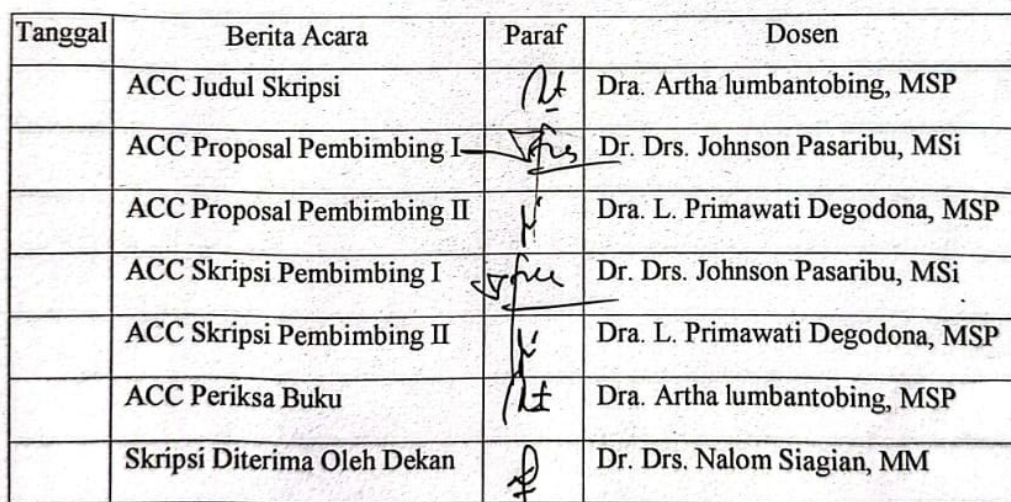 Tanggal Berita Acara Paraf Dosen
ACC Judul Skripsi Dra. Artha lumbantobing, MSP
ACC Proposal Pembimbing I Dr. Drs. Johnson Pasaribu, MSi
ACC Proposal Pembimbing II Dra. L. Primawati Degodona, MSP
ACC Skripsi Pembimbing I Dr. Drs. Johnson Pasaribu, MSi
ACC Skripsi Pembimbing II Dra. L. Primawati Degodona, MSP
ACC Periksa Buku Dra. Artha lumbantobing, MSP
Skripsi Diterima Oleh Dekan Dr. Drs. Nalom Siagian, MM